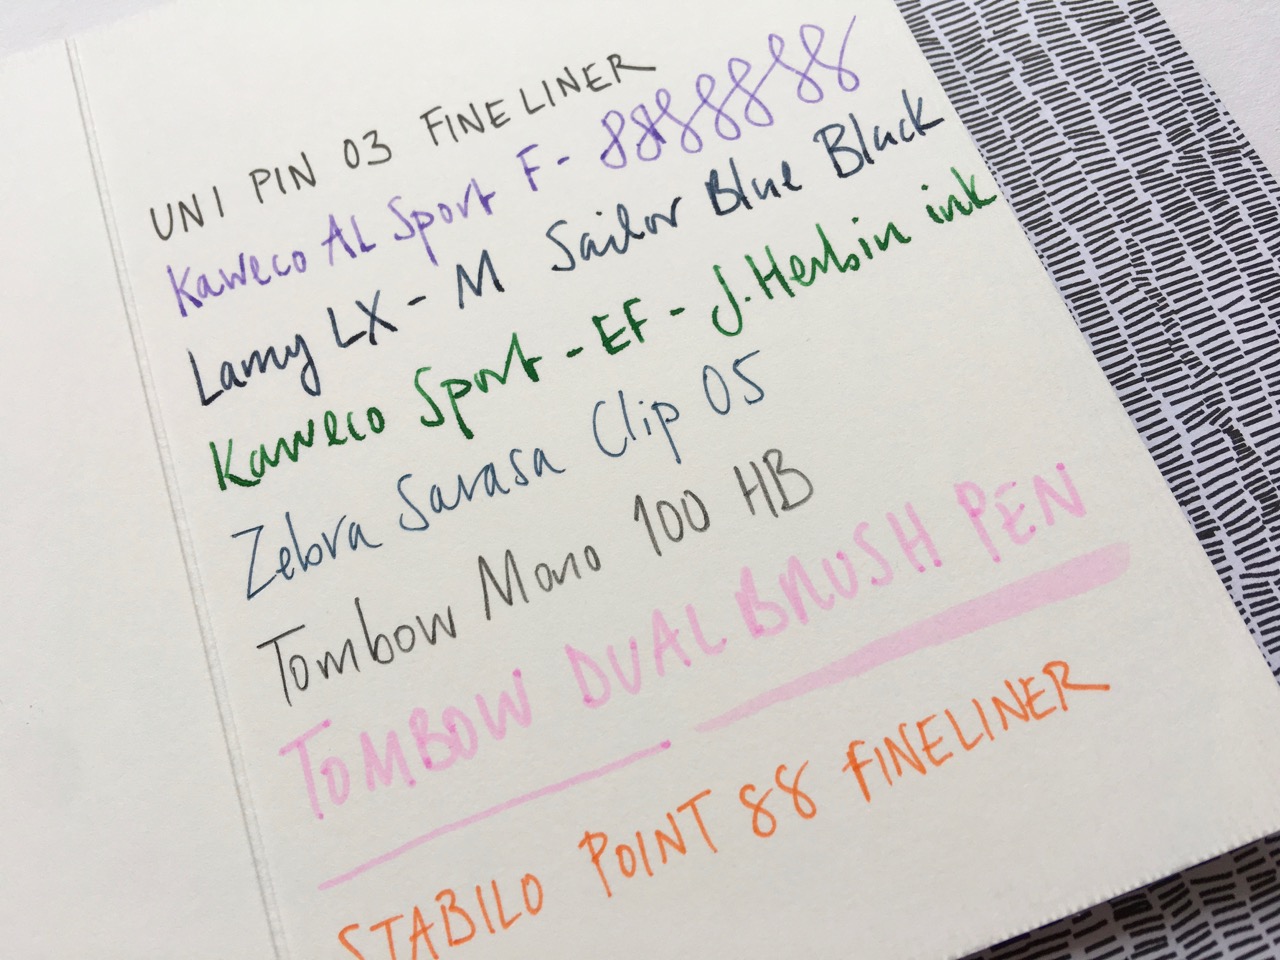 UNI PIN 03 FINELINER
Kaweco AL Sport F - 88888888
Lamy LX - M Sailor Blue Black
Kaweco Sport - EF - J. Herbin ink
Zebra Sarasa Clip 05
Tombow Mono 100 HB
TOMBOW DUAL BRUSH PEN
STABILO POINT 88 FINELINER